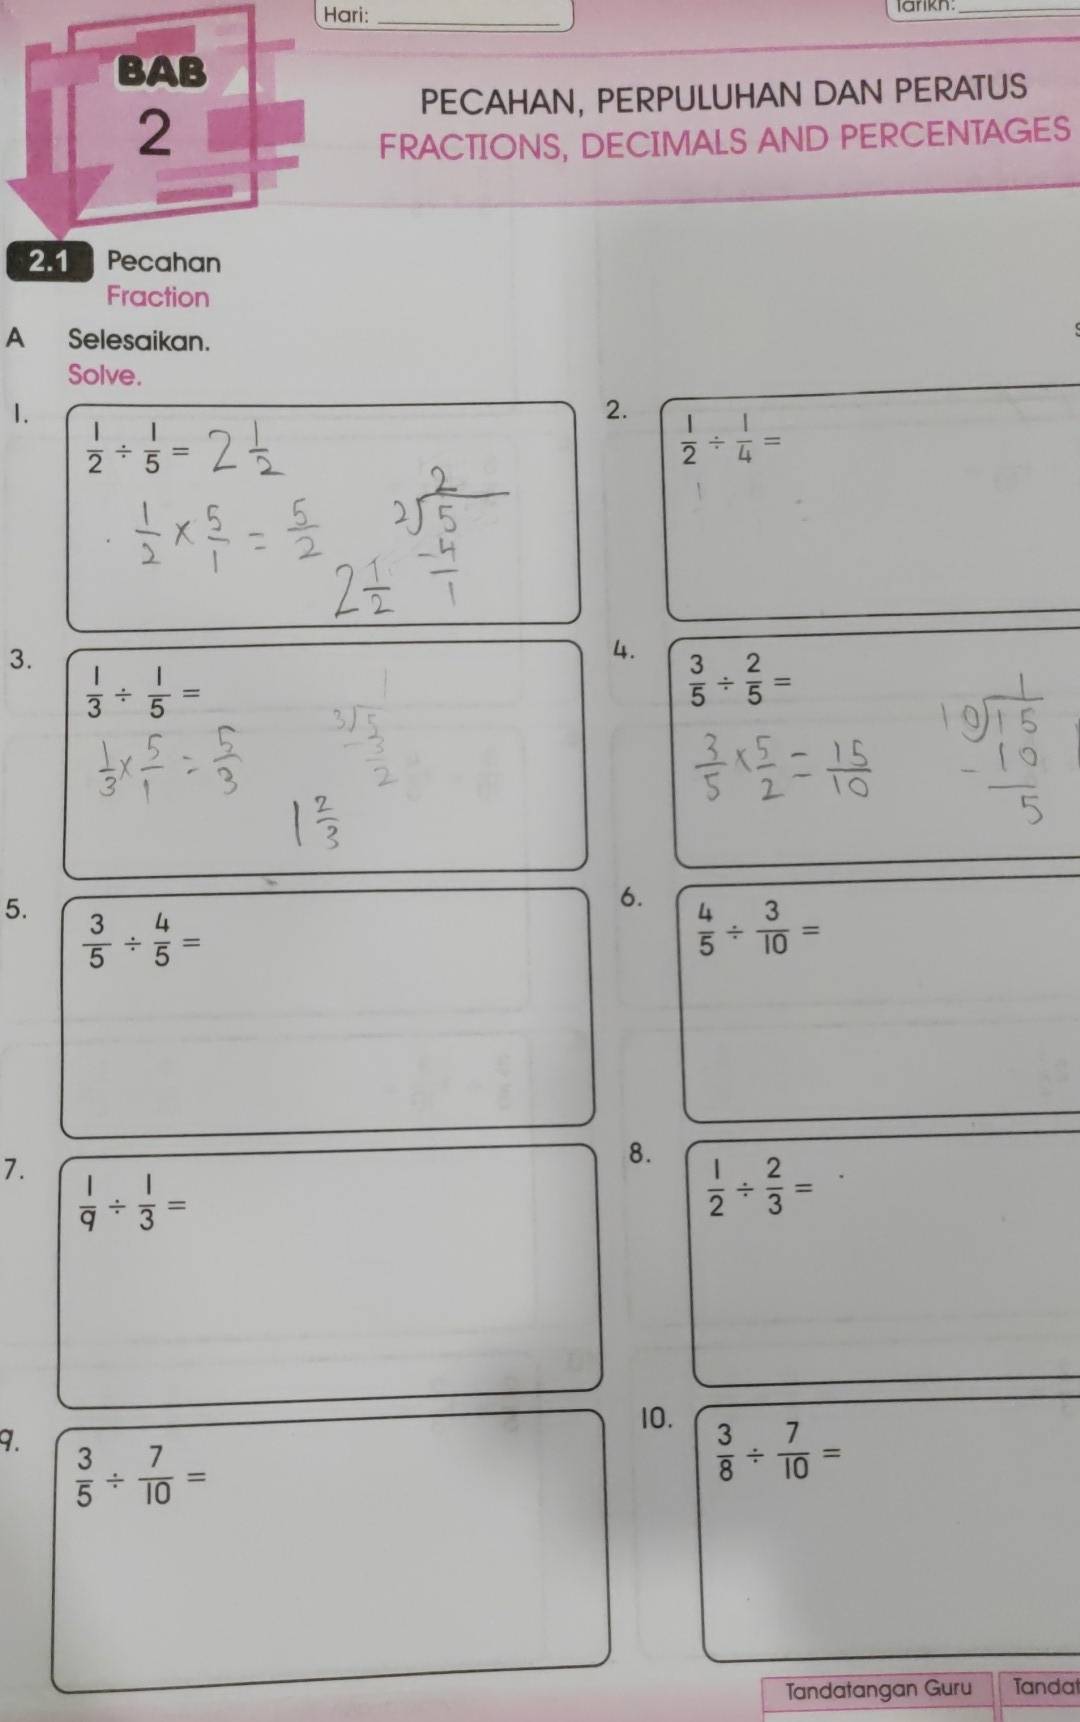 Hari:
Tarikh:
BAB
2
PECAHAN, PERPULUHAN DAN PERATUS
FRACTIONS, DECIMALS AND PERCENTAGES
2.1 Pecahan
Fraction
A Selesaikan.
Solve.
1. 1/2 ÷ 1/5 = 2 1/2
1/2 × 5/1 = 5/2
2 1/2
2
2)5
-4
1
2. 1/2 ÷ 1/4 =
1
3. 1/3 ÷ 1/5 =
1/3 × 5/1 = 5/3
1 2/3
1
3)5
-3
2
4. 3/5 ÷ 2/5 =
3/5 × 5/2 = 15/10
1
10)15
-10
5
5. 3/5 ÷ 4/5 =
6. 4/5 ÷ 3/10 =
7. 1/9 ÷ 1/3 =
8. 1/2 ÷ 2/3 =
9. 3/5 ÷ 7/10 =
10. 3/8 ÷ 7/10 =
Tandatangan Guru